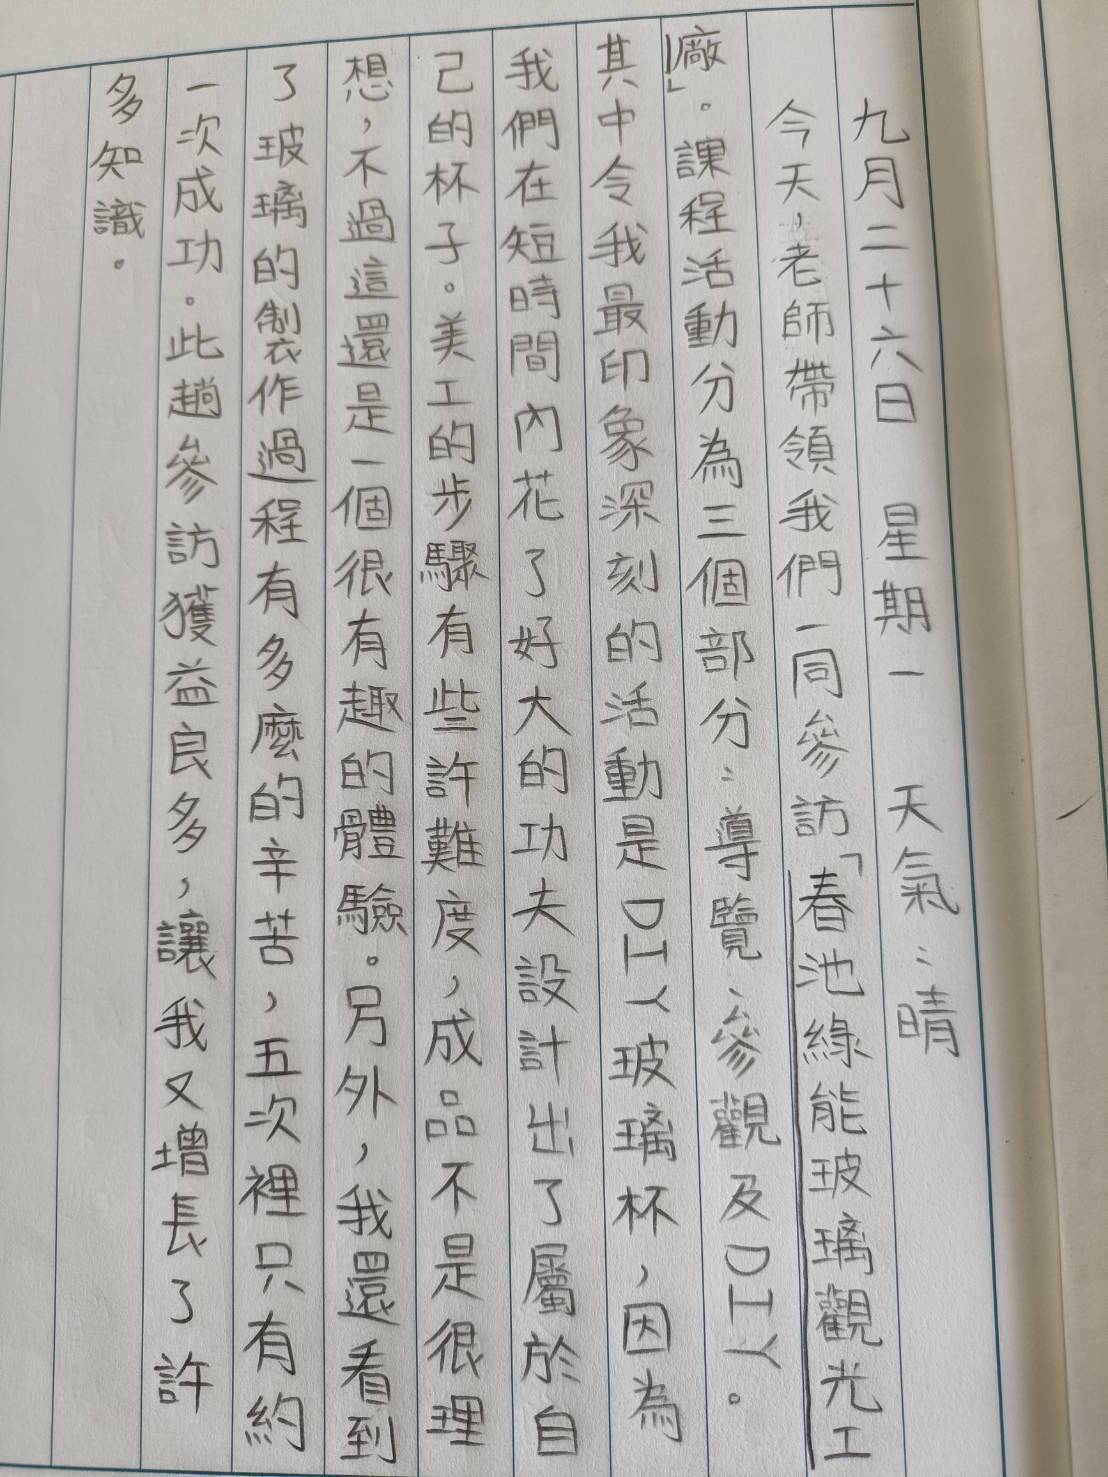 九月二十六日　星期一　天氣：晴
今天,老師帶領我們一同參訪「春池綠能玻璃觀光工
廠」。課程活動分為三個部分：導覽、參觀及DIY。
其中令我最印象深刻的活動是DIY玻璃杯，因為
我們在短時間內花了好大的功夫設計出了屬於自
己的杯子。美工的步驟有些許難度，成品不是很理
想，不過這還是一個很有趣的體驗。另外，我還看到
了玻璃的製作過程有多麼的辛苦，五次裡只有約
一次成功。此趟參訪獲益良多，讓我又增長了許
多知識。